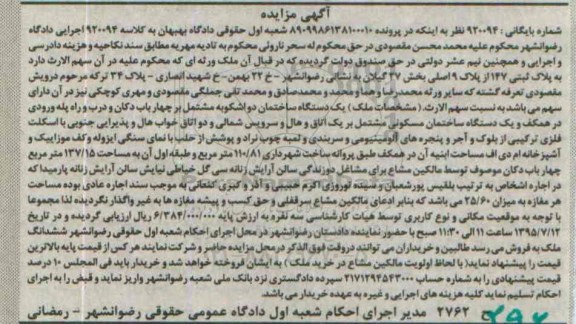 آگهی مزایده
شماره بایگانی : ۹۲۰۰۹۴ نظر به اینکه در پرونده ۸۹۰۹۹۸۶۱۳۸۱۰۰۰۱۰ شعبه اول حقوقی دادگاه بهبهان به کلاسه ۹۲۰۰۹۴ اجرایی دادگاه
رضوانشهر محکوم علیه محمد محسن مقصودی در حق محکوم له سحر نارونی محکوم به تادیه مهریه مطابق سند نکاحیه و هزینه دادرسی
و اجرایی و همچنین نیم عشر دولتی در حق صندوق دولت گردیده که در قبال آن ملک ورثه ای که محکوم علیه در آن سهم الارث دارد
به پلاک ثبتی ۱۴۷ از پلاک ۹ اصلی بخش ۲۷ گیلان به نشانی رضوانشهر - خ ۲۲ بهمن - خ شهید انصاری - پلاک ۳۴ ترکه مرحوم درویش
مقصودی تعرفه گشته که سایر ورثه محمدرضا و هما و حمید و محمدصادق و محمد تقی جملگی مقصودی و مهری کوچکی نیز در آن دارای
سهم می باشد به نسبت سهم الارث. ( مشخصات ملک ) یک دستگاه ساختمان دو اشکوبه مشتمل بر چهار باب دکان و درب و راه پله ورودی
در همکف و یک دستگاه ساختمان مسکونی مشتمل بر یک اتاق و هال و سرویس شمالی و دو اتاق خواب هال و پذیرایی جنوبی با اسکلت
فلزی ترکیبی از بلوک و آجر و پنجره های آلومینیومی و سربندی و لمبه چوب نراد و پوشش از حلب با نمای سنگی ایزوله وکف موزاییک و
آشپزخانه ام دی اف مساحت ابنیه آن در همکف طبق پروانه ساخت شهرداری ۱۱۰/۸۱ متر مربع و طبقه اول آن به مساحت ۱۳۷/۱۵ متر مربع
چهار باب دکان موصوف توسط مالکین مشاع برای مشاغل دوزندگی سالن آرایش زنانه سی گل خیاطی نیایش سالن آرایش زنانه پارمیدا که
در اجاره اشخاص به ترتیب بلقیس پورشعبان و سیده نوروزی اکرم حبیبی و آذر و کبری کنعانی به موجب سند اجاره عادی بوده مساحت
هر مغازه به میزان ۲۵/۶۰ می باشد که بنابر ادعای مالکین مشاع سرقفلی و حق کسب و پیشه مغازه ها به غیر واگذار نگردیده لذا مجموعا
با توجه به موقعیت مکانی و نوع کاربری توسط هیات کارشناسی سه نفره به ارزش پایه ۶/۳۸۴/۰۰۰/۰۰۰ ریال ارزیابی گردیده و در تاریخ
۱۳۹۵/۷/۱۲ ساعت ۱۱ الی ۱۱:۳۰ صبح با حضور نماینده دادستان رضوانشهر در محل اجرای احکام شعبه اول حقوقی رضوانشهر ششدانگ
ملک به فروش می رسد طالبین و خریداران می توانند دروقت فوق الذکر درمحل مزایده حاضر و شرکت نمایند هر کس از قیمت پایه بالاترین
قیمت را پیشنهاد نماید( با لحاظ اولویت مالکین مشاع در خرید ملک ) به ایشان فروخته خواهد شد و خریدار باید فی المجلس ۱۰ درصد
قیمت پیشنهادی را به شماره حساب ۲۱۷۱۲۹۴۵۴۳۰۰۰ سپرده دادگستری نزد بانک ملی شعبه رضوانشهر واریز نماید و قبض را به اجرای
احکام تسلیم نماید کلیه هزینه های اجرایی و غیره به عهده خریدار می باشد.
۲۷۶۲ مدیر اجرای احکام شعبه اول دادگاه عمومی حقوقی رضوانشهر - رمضانی